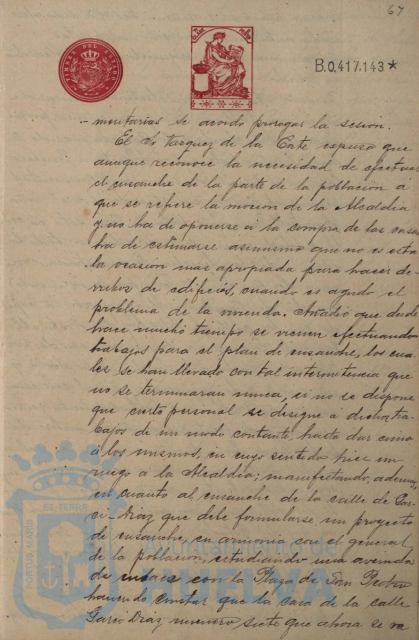 67
TIMBRE DEL ESTADO
B.0.417.143*
mentarias se acordó prorrogar la sesión.
El Sr Vazquez de la Corte expuso que
aunque reconoce la necesidad de efectuar
el ensanche de la parte de la población á
que se refiere la mocion de la Alcaldía
y no ha de oponerse á la compra de las casas
ha de estimarse asimismo que no es esta
la ocasión mas apropiada para hacer de-
rribos de edificios, cuando es agudo el
problema de la vivienda. Añadió que desde
hace mucho tiempo se vienen efectuando
trabajos para el plan de ensanche, los cua-
les se han llevado con tal intermitencia que
no se terminaran nunca, si no se dispone
que cierto personal se designe á dichos tra-
bajos de un modo constante, hasta dar cima
á los mismos, en cuyo sentido hizo un
ruego á la Alcaldía; manifestando, ademas,
en cuanto al ensanche de la calle de Gar-
ci-Diaz que debe formularse un proyecto
de ensanche, en armonia con el general
de la población, estudiando una avenida
de enlace con la Plaza de San Pedro
haciendo constar que la casa de la calle
Garci Diaz número siete que ahora se va
Ayuntamiento de
HUELVA
PORTUS MARIS
ET TERRÆ